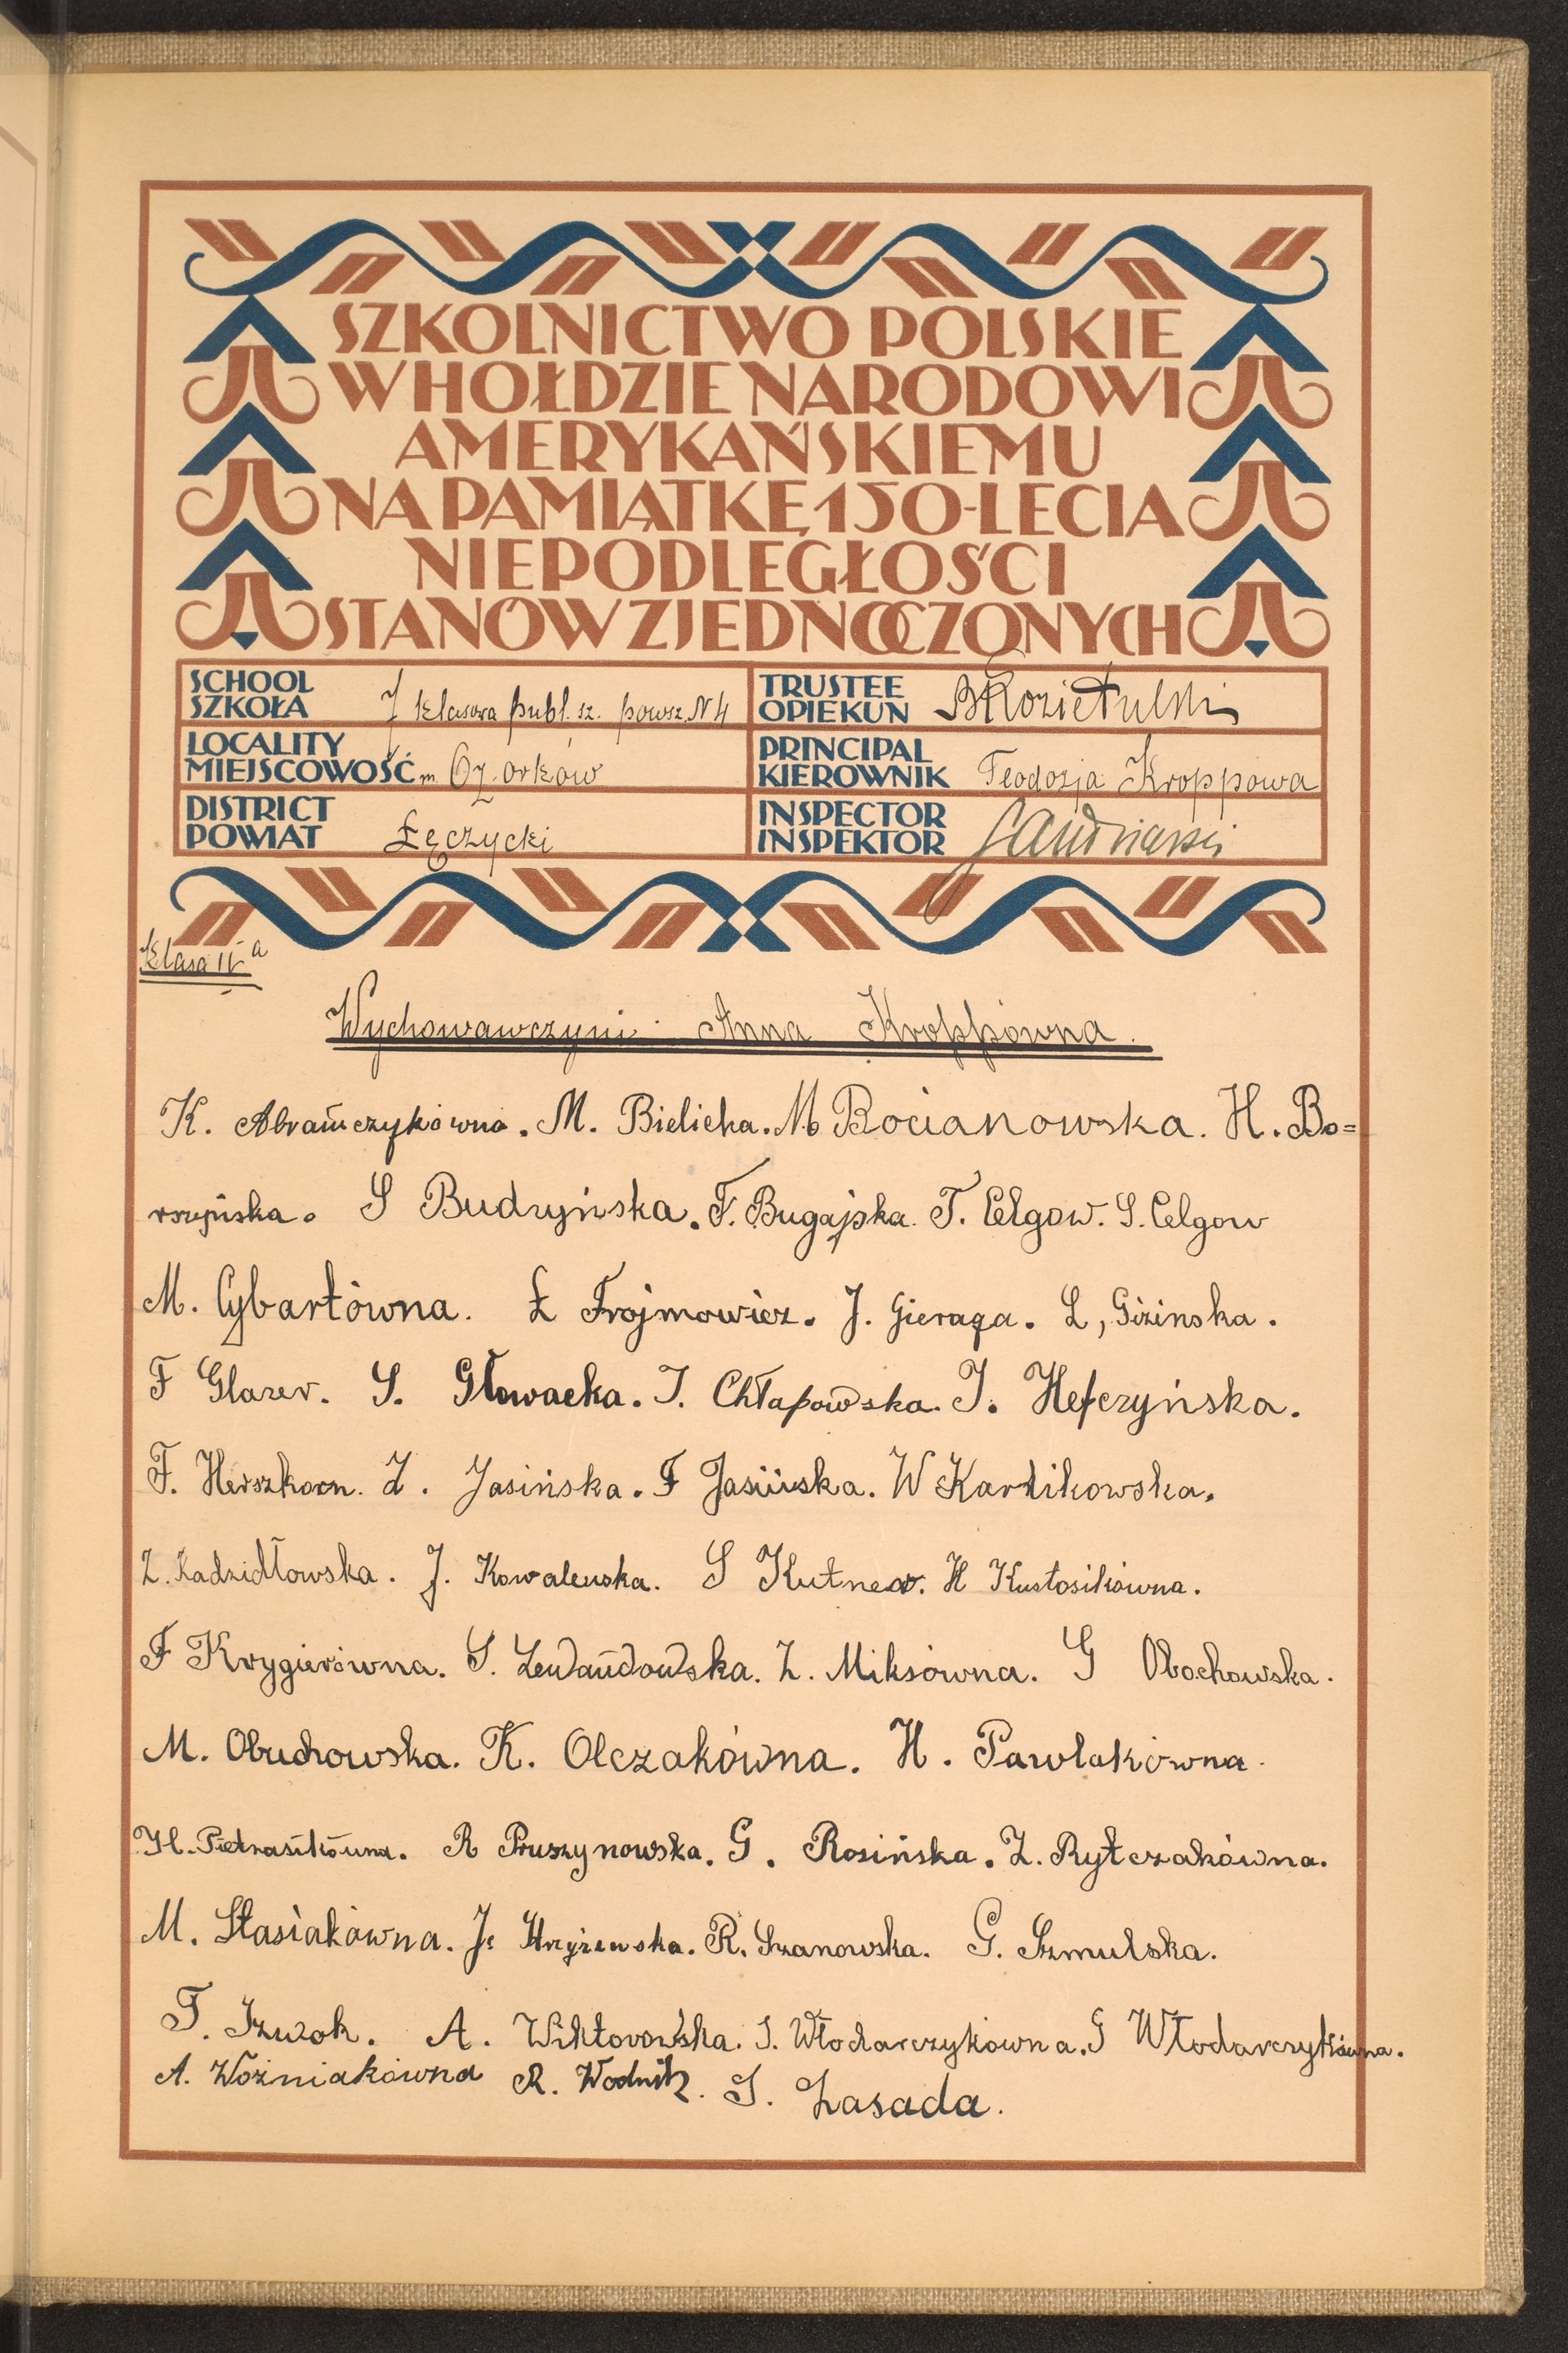 SZKOLNICTWO POLSKIE
W HOŁDZIE NARODOWI
AMERYKAŃSKIEMU
NA PAMIĄTKĘ 150-LECIA
NIEPODLEGŁOŚCI
STANÓW ZJEDNOCZONYCH
SCHOOL
SZKOŁA 7 klasowa publ. sz. powsz. N 4
TRUSTEE
OPIEKUN
LOCALITY
MIEJSCOWOŚĆ m. Ozorków
PRINCIPAL
KIEROWNIK Teodozja Kroppowa
DISTRICT
POWIAT Łęczycki
INSPECTOR
INSPEKTOR
Klasa IV a
Wychowawczyni: Anna Kroppówna.
K. Abramczykówna. M. Bielicka. M Bocianowska. H. Bo=
rszyńska. S Budzyńska. F. Bugajska. T. Celgow. S. Celgow
M. Cybartówna. Ł Frojmowicz. J. Gieraga. L, Gizinska.
F Glazer. S. Głowacka. J. Chłapowska. J. Hefczyńska.
F. Herszkorn. Z. Jasińska. F Jasińska. W Kartikowska.
Z. Kadzidłowska. J. Kowalewska. S Kutner. H Kustosikówna.
F Krygierówna. S. Lewandowska. Z. Miksówna. G Obochowska.
M. Obuchowska. K. Olczakówna. H. Pawlakówna.
H. Pietrasikówna. R Pruszynowska. G. Rosińska. Z. Rytczakówna.
M. Stasiakówna. J. R. Szanowska. G. Szmulska.
T. Szwok. A. Wiktorowska. S. Włodarczykówna. G Włodarczykówna.
A. Woźniakówna R. Wodnik. S. Zasada.